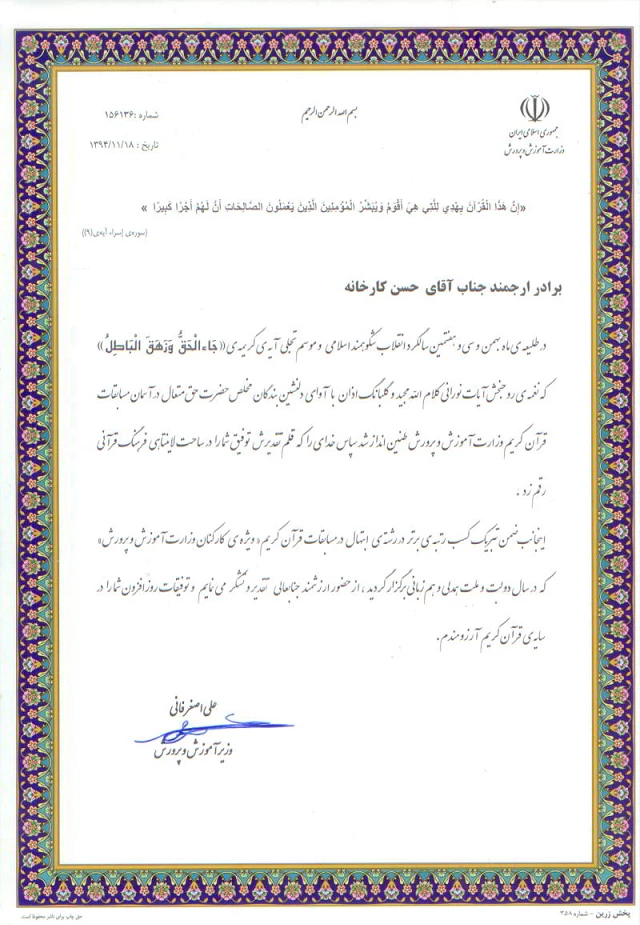 بسم الله الرحمن الرحیم
جمهوری اسلامی ایران
وزارت آموزش و پرورش
شماره :۱۵۶۱۳۶
تاریخ : ۱۳۹۴/۱۱/۱۸
«إِنَّ هَذَا الْقُرْآنَ يِهْدِي لِلَّتِي هِيَ أَقْوَمُ وَيُبَشِّرُ الْمُؤْمِنِينَ الَّذِينَ يَعْمَلُونَ الصَّالِحَاتِ أَنَّ لَهُمْ أَجْرًا كَبِيرًا »
(سوره‌ی إسراء آیه‌ی(۹))
برادر ارجمند جناب آقای حسن کارخانه
در طلیعه‌ی ماه بهمن و سی و هفتمین سالگرد انقلاب شکوهمند اسلامی و موسم تجلی آیه‌ی کریمه‌ی «جَاءَ الْحَقُّ وَزَهَقَ الْبَاطِلُ»
که نغمه‌ی روحبخش آیات نورانی کلام الله مجید و گلبانگ اذان با آوای دلنشین بندگان مخلص حضرت حق متعال در آسمان مسابقات
قرآن کریم وزارت آموزش و پرورش طنین انداز شد سپاس خدای را که قلم تقدیرش توفیق شما را در ساحت لایتناهی فرهنگ قرآنی
رقم زد .
اینجانب ضمن تبریک کسب رتبه‌ی برتر در رشته‌ی ابتهال در مسابقات قرآن کریم «ویژه‌ی کارکنان وزارت آموزش و پرورش»
که در سال دولت و ملت همدلی و هم زبانی برگزار گردید ، از حضور ارزشمند جنابعالی تقدیر و تشکر می نمایم و توفیقات روز افزون شما را در
سایه‌ی قرآن کریم آرزومندم.
علی اصغر فانی
وزیر آموزش و پرورش
پخش زرین - شماره ۳۵۸
حق چاپ برای ناشر محفوظ است.